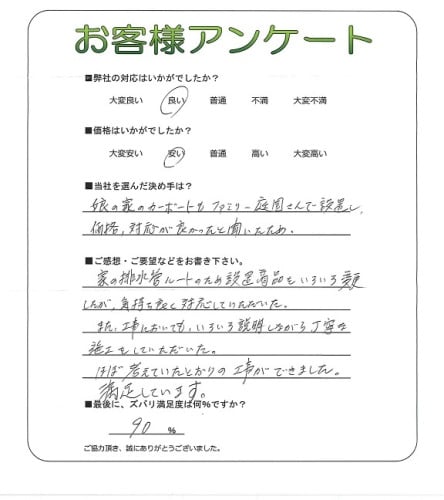 お客様アンケート
■弊社の対応はいかがでしたか？
大変良い 良い 普通 不満 大変不満
■価格はいかがでしたか？
大変安い 安い 普通 高い 大変高い
■当社を選んだ決め手は？
娘の家のカーポートもファミリー庭園さんで設置し、
価格、対応が良かったと聞いたため。
■ご感想・ご要望などをお書き下さい。
家の排水管ルートのため設置商品をいろいろ
したが、気持ち良く対応していただいた。
また、工事においても、いろいろ説明しながら丁寧な
施工をしていただいた。
ほぼ考えていたとおりの工事ができました。
満足しています。
■最後に、ズバリ満足度は何%ですか？
90 %
ご協力頂き、誠にありがとうございました。